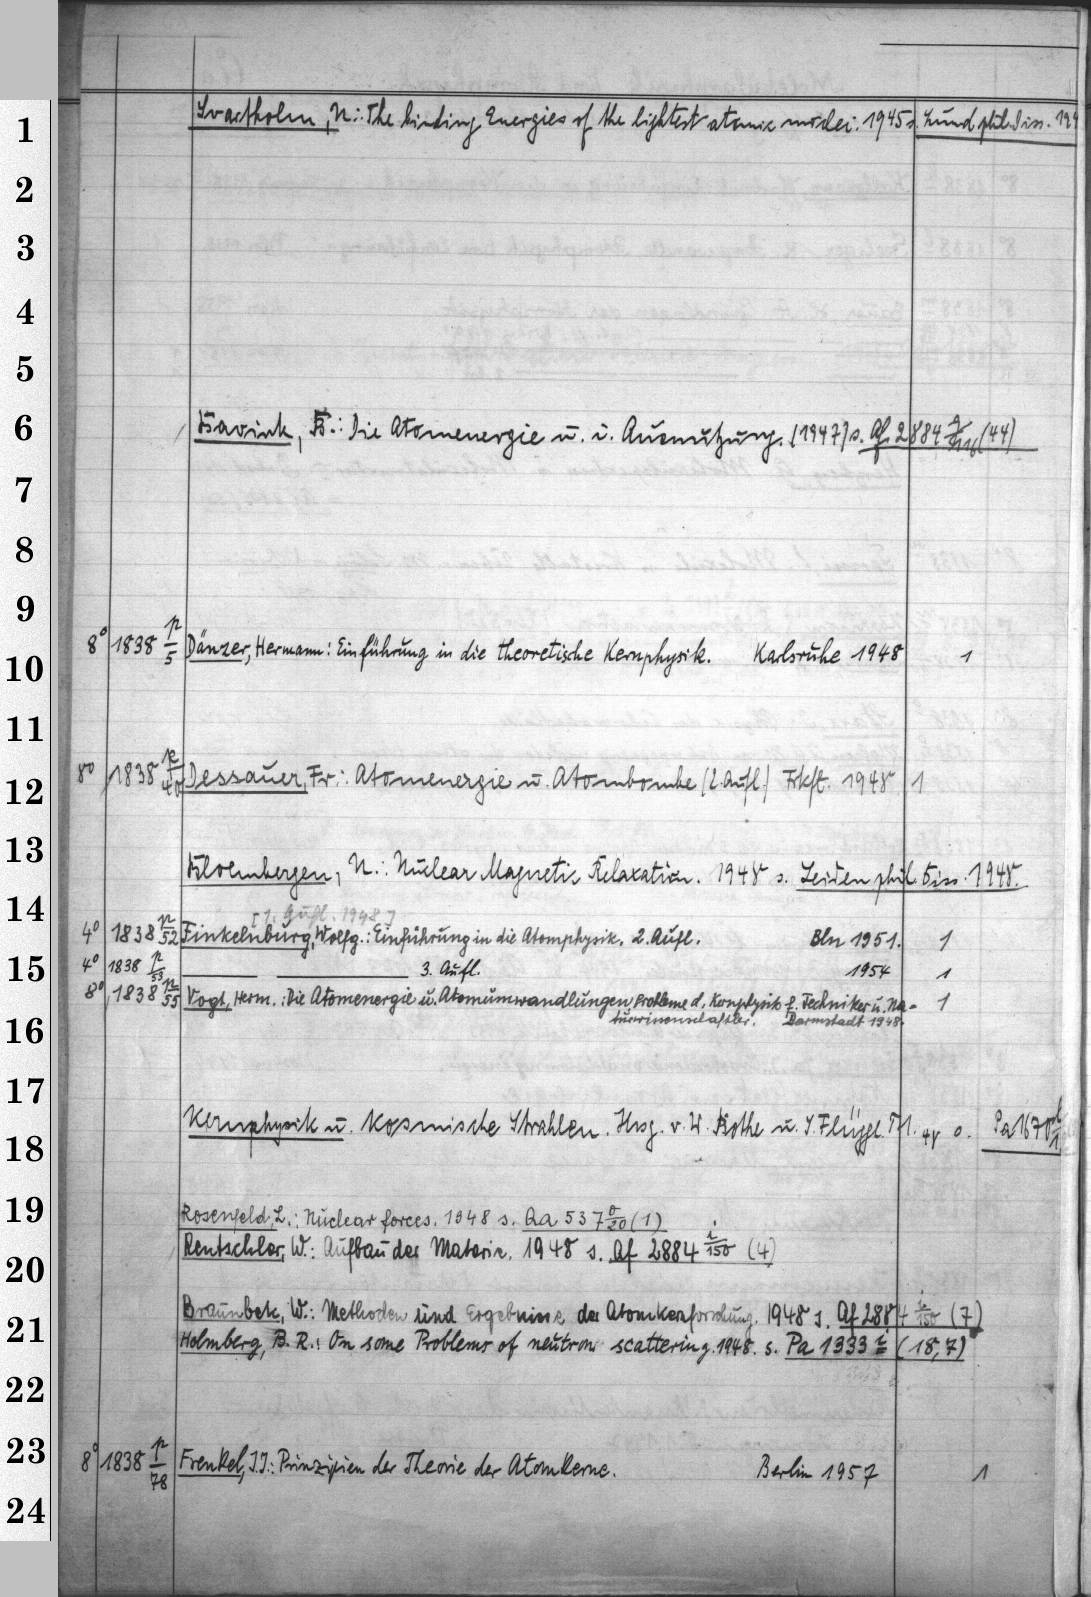 1
Svartholm, N.: The binding Energies of the lightest atomic nuclei. 1945 s. Lund phil. Diss. 194
2
3
4
5
6
Bavink, B.: Die Atomenergie u. i. Ausnutzung. (1947) s. Af 2884 (44)
7
8
9
8° 1838 p/5 Dänzer, Hermann: Einführung in die theoretische Kernphysik. Karlsruhe 1948 1
10
11
8° 1838 p/40 Dessauer, Fr.: Atomenergie u. Atombombe (2. Aufl.) Frkft. 1948 1
12
13
Bloembergen, N.: Nuclear Magnetic Relaxation. 1948 s. Leiden phil. Diss. 1948.
14
[1. Aufl. 1948]
4° 1838 p/52 Finkelnburg, Wolfg.: Einführung in die Atomphysik. 2. Aufl. Bln 1951. 1
15
4° 1838 p/53 3. Aufl. 1954 1
8° 1838 p/55 Vogt, Herm.: Die Atomenergie u. Atomumwandlungen probleme d. Kernphysik f. Techniker u. Na-
turwissenschaftler. Darmstadt 1948. 1
16
17
Kernphysik u. Kosmische Strahlen. Hrsg. v. W. Bothe u. S. Flügge. Tl 1. 48 s. Pa 1670
18
19
Rosenfeld, L.: Nuclear forces. 1948 s. Qa 537 o/20 (1)
Rentschler, W.: Aufbau der Materie. 1948 s. Af 2884 i/150 (4)
20
Braunbek, W.: Methoden und Ergebnisse der Atomkernforschung. 1948 s. Af 2884 i/150 (7)
21
Holmberg, B. R.: On some Problems of neutron scattering. 1948. s. Pa 1333 (18,7)
22
23
8° 1838 p/78 Frenkel, J.J.: Prinzipien der Theorie der Atomkerne. Berlin 1957 1
24